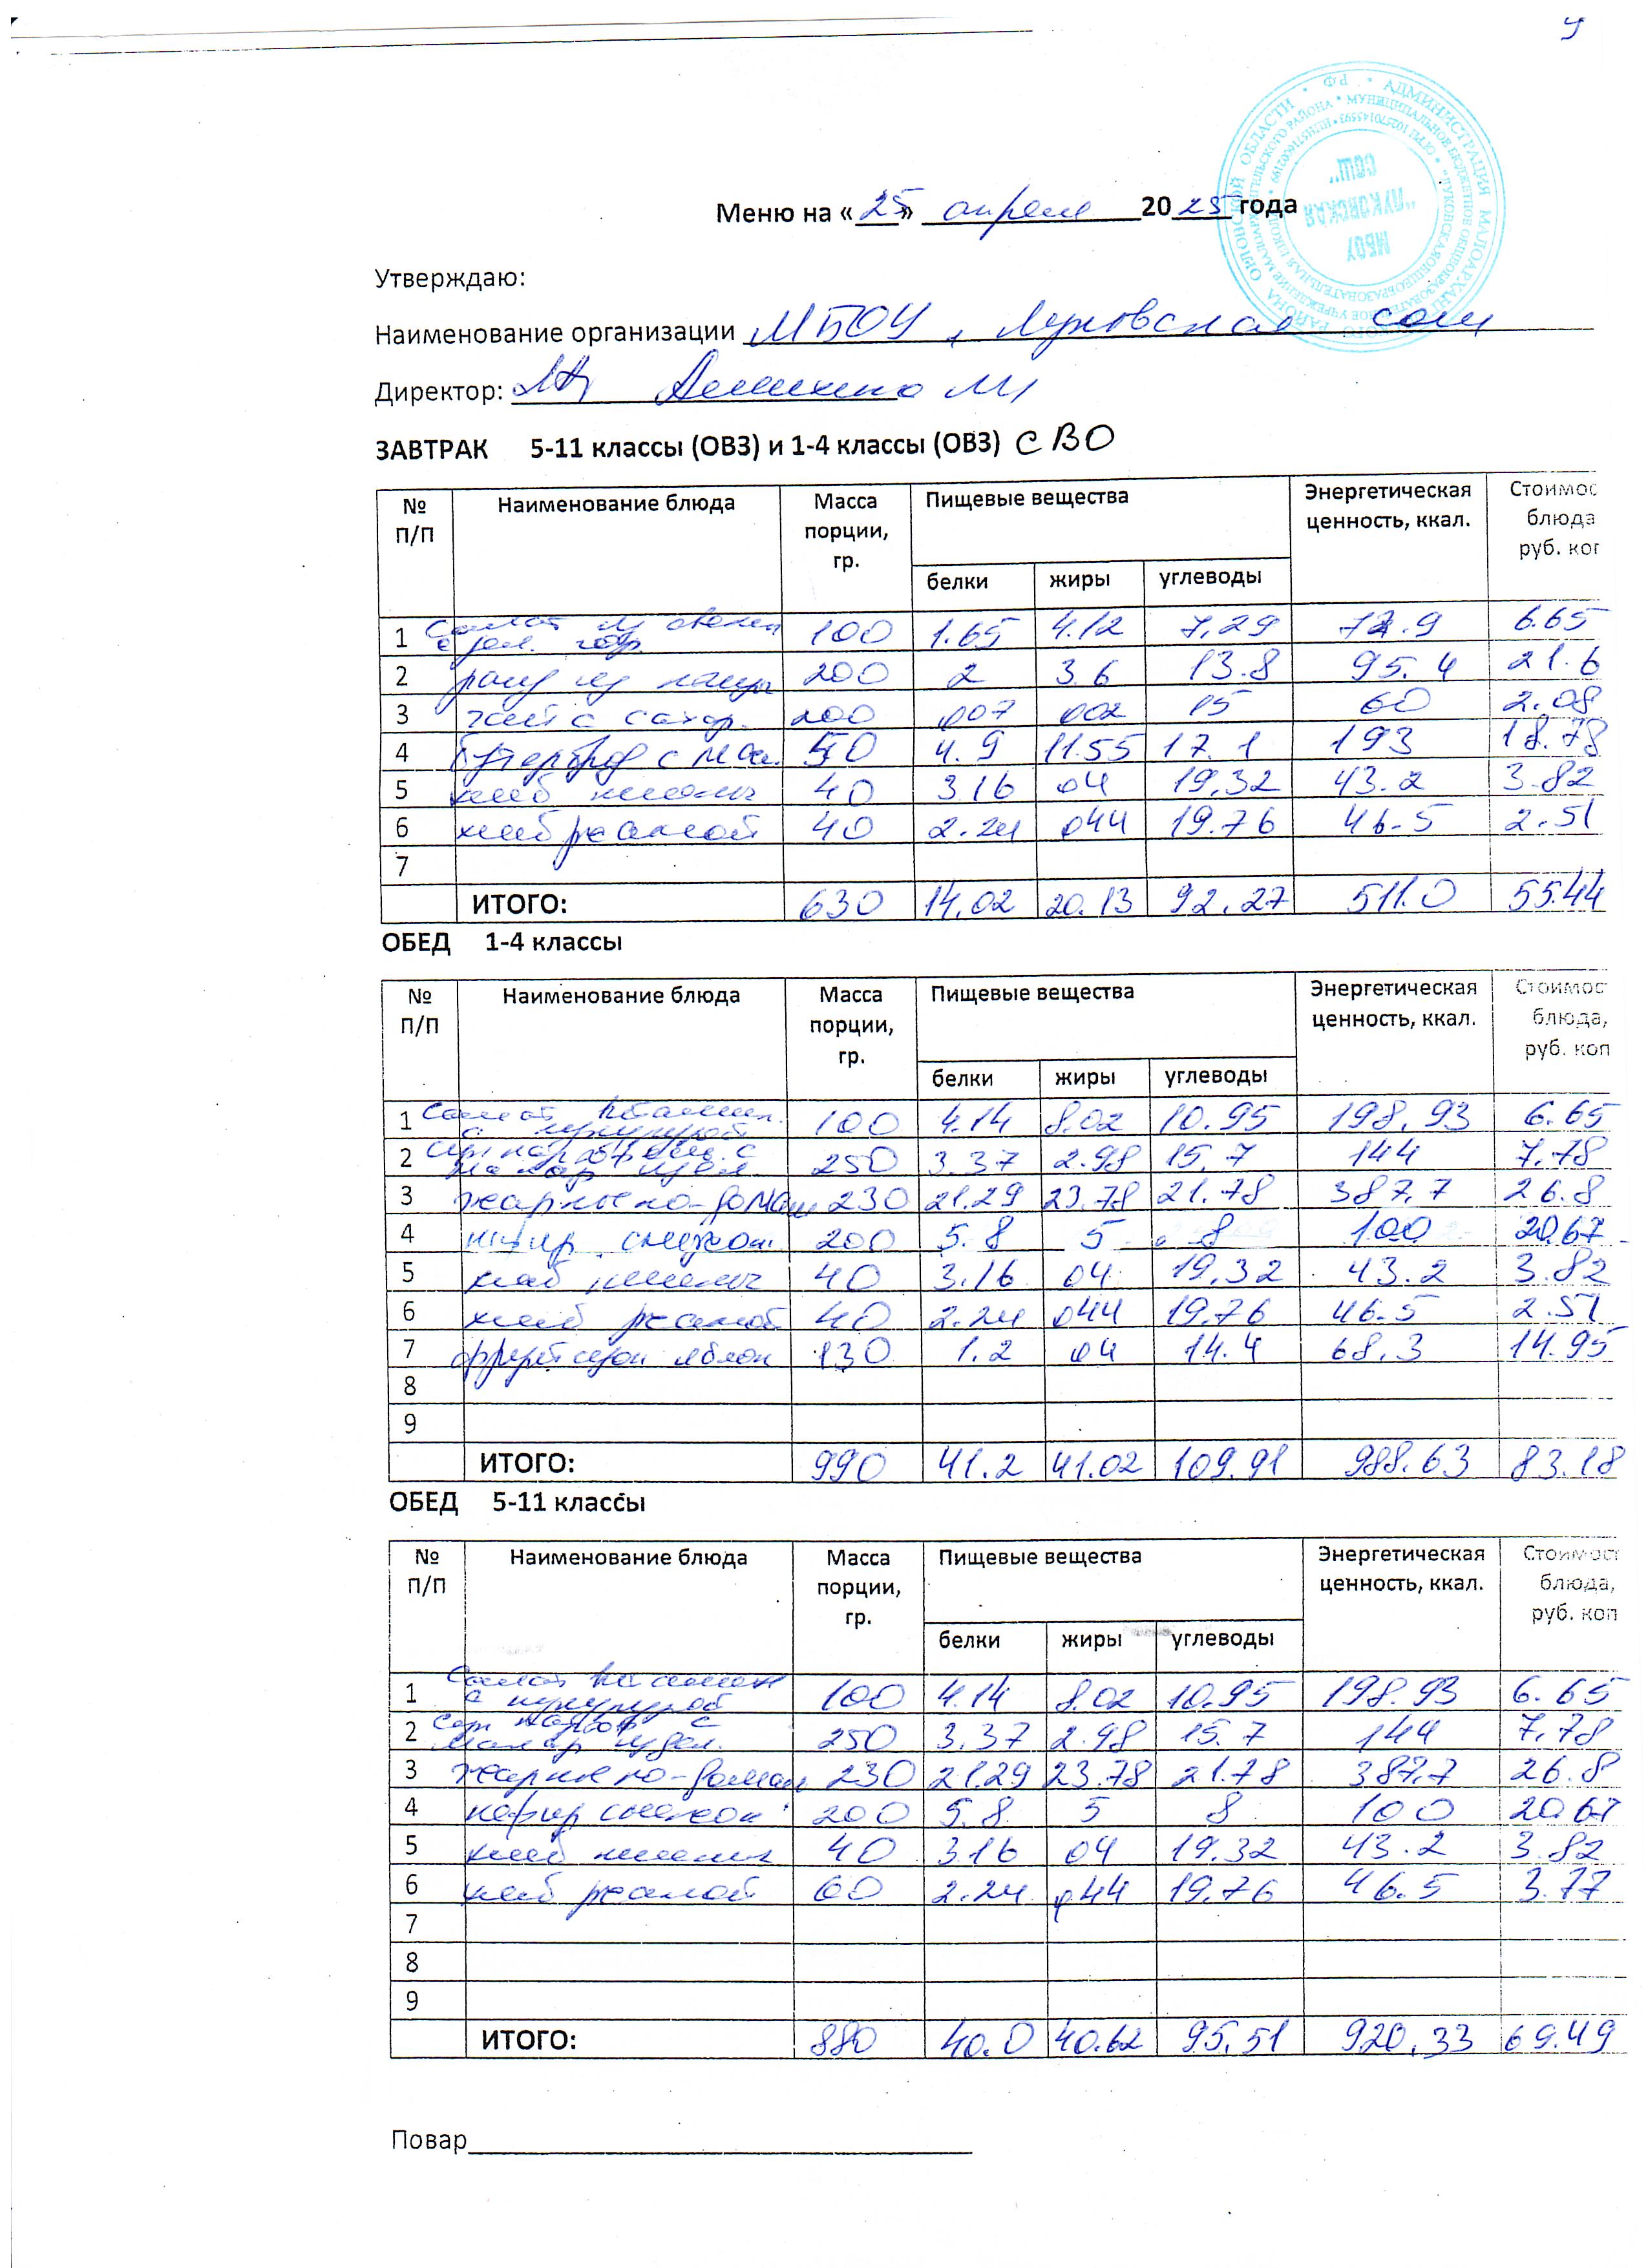 Меню на « 25 » апреля 20 25 года
Утверждаю:
Наименование организации МБОУ "Луковская сош
Директор:
ЗАВТРАК 5-11 классы (ОВЗ) и 1-4 классы (ОВЗ) СВО
№ П/П Наименование блюда Масса порции, гр. Пищевые вещества Энергетическая ценность, ккал. Стоимос блюда руб. коп
белки жиры углеводы
1 Салат из свеклы с зел. гор 100 1.65 4.12 7,29 72.9 6.65
2 рагу из 200 2 3.6 13.8 95.4 21.6
3 чай с сахар. 200 007 002 15 60 2.08
4 бутерброд с мас. 50 4.9 11.55 17.1 193 18.78
5 хлеб пшенич 40 316 04 19,32 43.2 3.82
6 хлеб ржаной 40 2.24 044 19.76 46.5 2.51
7
ИТОГО: 630 14.02 20.13 92.27 511.0 55.44
ОБЕД 1-4 классы
№ П/П Наименование блюда Масса порции, гр. Пищевые вещества Энергетическая ценность, ккал. Стоимос блюда, руб. коп
белки жиры углеводы
1 Салат витамин. с кукурузой 100 4.14 8.02 10.95 198,93 6.65
2 Суп картофел с макар издел. 250 3.37 2.98 15,7 144 7.78
3 жаркое по-домаш 230 21.29 23.78 21.78 387,7 26.8
4 кефир снежок 200 5.8 5 8 100 20.67
5 хлеб пшенич 40 3.16 04 19,32 43.2 3.82
6 хлеб ржаной 40 2.24 044 19,76 46.5 2.51
7 фрукт сезон яблок 130 1.2 04 14.4 68,3 14.95
8
9
ИТОГО: 990 41.2 41.02 109.91 988.63 83.18
ОБЕД 5-11 классы
№ П/П Наименование блюда Масса порции, гр. Пищевые вещества Энергетическая ценность, ккал. Стоимост блюда, руб. коп
белки жиры углеводы
1 Салат витамин с кукурузой 100 4.14 8.02 10.95 198.93 6.65
2 Суп картоф с макар издел. 250 3.37 2.98 15.7 144 7,78
3 жаркое по-домаш 230 21.29 23.78 21.78 387,7 26.8
4 кефир снежок 200 5.8 5 8 100 20.67
5 хлеб пшенич 40 316 04 19,32 43.2 3.82
6 хлеб ржаной 60 2.24 044 19,76 46.5 3.77
7
8
9
ИТОГО: 880 40.0 40.62 95.51 920,33 69.49
Повар
МБОУ
"ЛУКОВСКАЯ
СОШ"